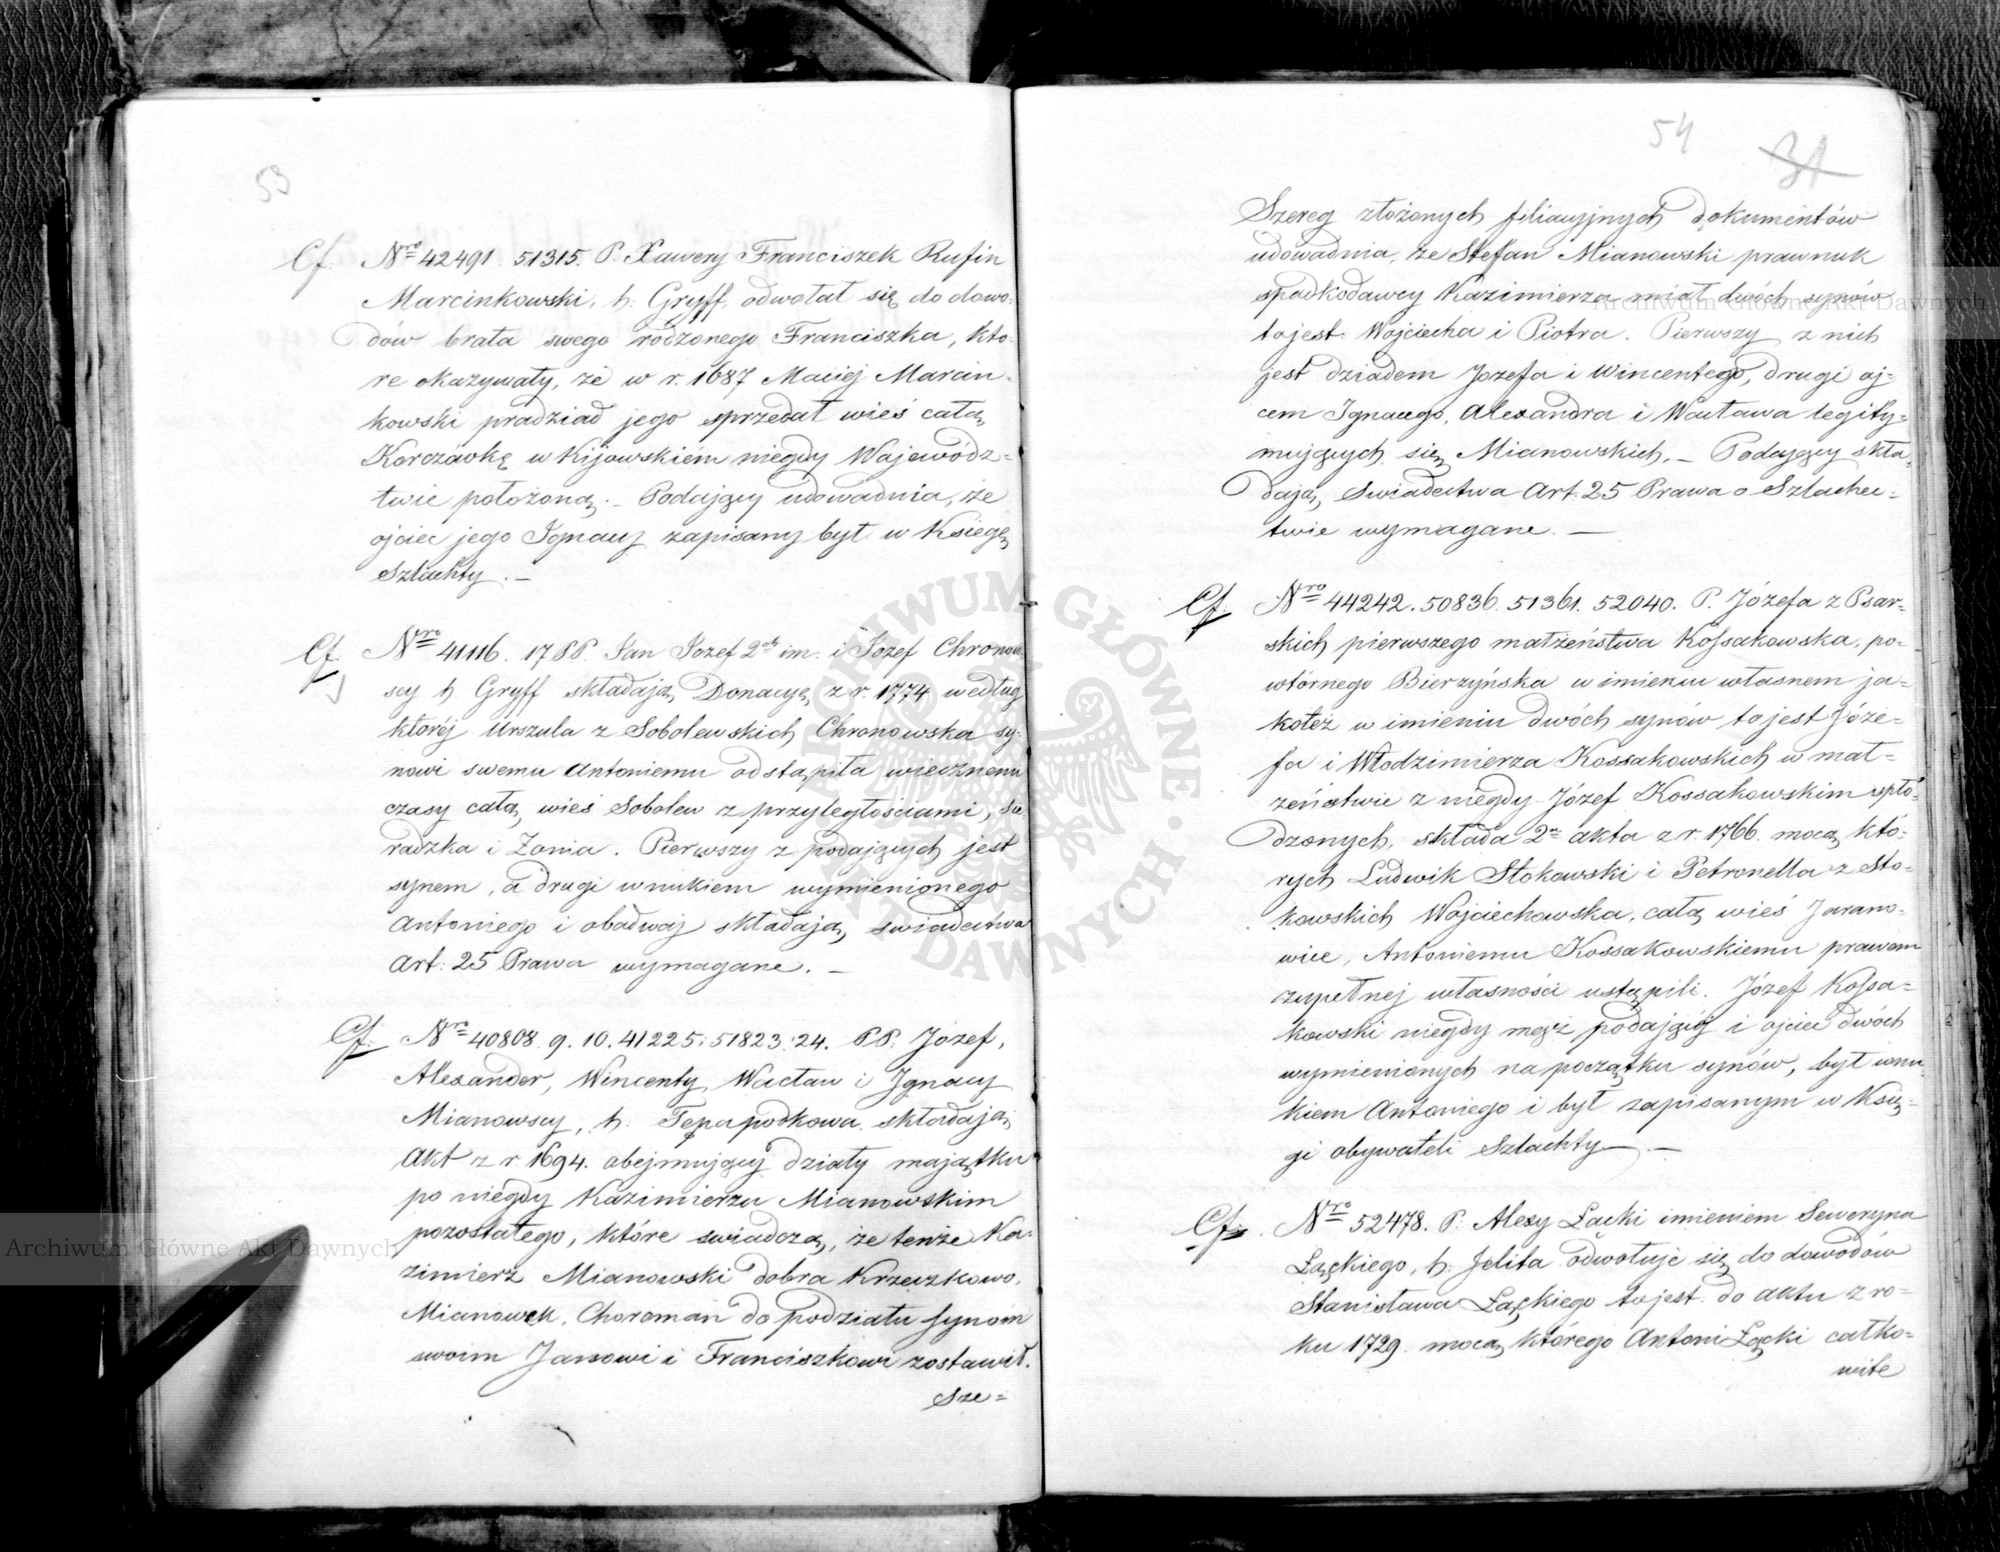 53
Cf. Nro 42491. 51315. P. Xawery Franciszek Rufin
Marcinkowski, h. Gryff, odwołał się do dowo-
dów brata swego rodzonego Franciszka, któ-
re okazywały, że w r. 1687 Maciej Marcin-
kowski pradziad jego sprzedał wieś całą
Korczówkę w Kijowskiém niegdy Wojewódz-
twie położoną. – Podający udowadnia, że
ojciec jego Ignacy zapisany był w Księgę
Szlachty. –
Cf. Nro 41116. 17 PP. Jan Jozef 2ch im. i Jozef Chronow-
scy h. Gryff składają Donacyą z r. 1774 według
któréj Urszula z Sobolewskich Chronowska sy-
nowi swemu Antoniemu odstąpiła wiecznemi
czasy całą wieś Sobolew z przyległościami,
radzka i Zonia. Pierwszy z podających jest
synem, a drugi wnukiem wymienionego
Antoniego i obadwaj składają swiadectwa
Art: 25 Prawa wymagane. –
Cf. Nro 40808. 9. 10. 41225. 51823. 24. PP. Józef,
Alexander, Wincenty, Wacław i Ignacy
Mianowscy, h. Tępa podkowa składają
Akt z r. 1694. obejmujący działy majątku
po niegdy Kazimierzu Mianowskim
pozostałego, które swiadczą, że tenże Ka-
zimierz Mianowski dobra Krzeczkowo,
Mianowek, Choroman do podziału synom
swoim Janowi i Franciszkowi zostawił.
Sze=
54
31
Szereg złożonych filiacyjnych dokumentów
udowadnia, że Stefan Mianowski prawnuk
spadkodawcy Kazimierza miał dwóch synów
to jest Wojciecha i Piotra. Pierwszy z nich
jest dziadem Jozefa i Wincentego, drugi oj-
cem Ignacego, Alexandra i Wacława legity=
mujących się Mianowskich. – Podający skła-
dają Swiadectwa Art. 25 Prawa o Szlachec=
twie wymagane. –
Cf. Nro 44242. 50836. 51361. 52040. P. Józefa z Psar-
skich pierwszego małżeństwa Kossakowska, po-
wtórnego Bierzyńska w imieniu własnem ja-
koteż w imieniu dwóch synów to jest Józe-
fa i Włodzimierza Kossakowskich w mał-
żeństwie z niegdy Józef Kossakowskim spło-
dzonych, składa 2a akta z r. 1766. mocą któ-
rych Ludwik Stokowski i Petronella z Sto-
kowskich Wojciechowska, całą wieś Jarano-
wice, Antoniemu Kossakowskiemu prawem
zupełnej własności ustąpili. Józef Kossa=
kowski niegdy mąż podającéj i ojciec dwóch
wymienionych na początku synów, był wnu-
kiem Antoniego i był zapisanym w Księ-
gi obywateli Szlachty –
Cf. Nro 52478. P. Alexy Łącki imieniem Seweryna
Łąckiego, h. Jelita odwołuje się do dowodów
Stanisława Łąckiego to jest do aktu z ro-
ku 1729. mocą którego Antoni Łącki całko-
wite
Archiwum Główne Akt Dawnych
Archiwum Główne Akt Dawnych
ARCHIWUM GŁÓWNE AKT DAWNYCH